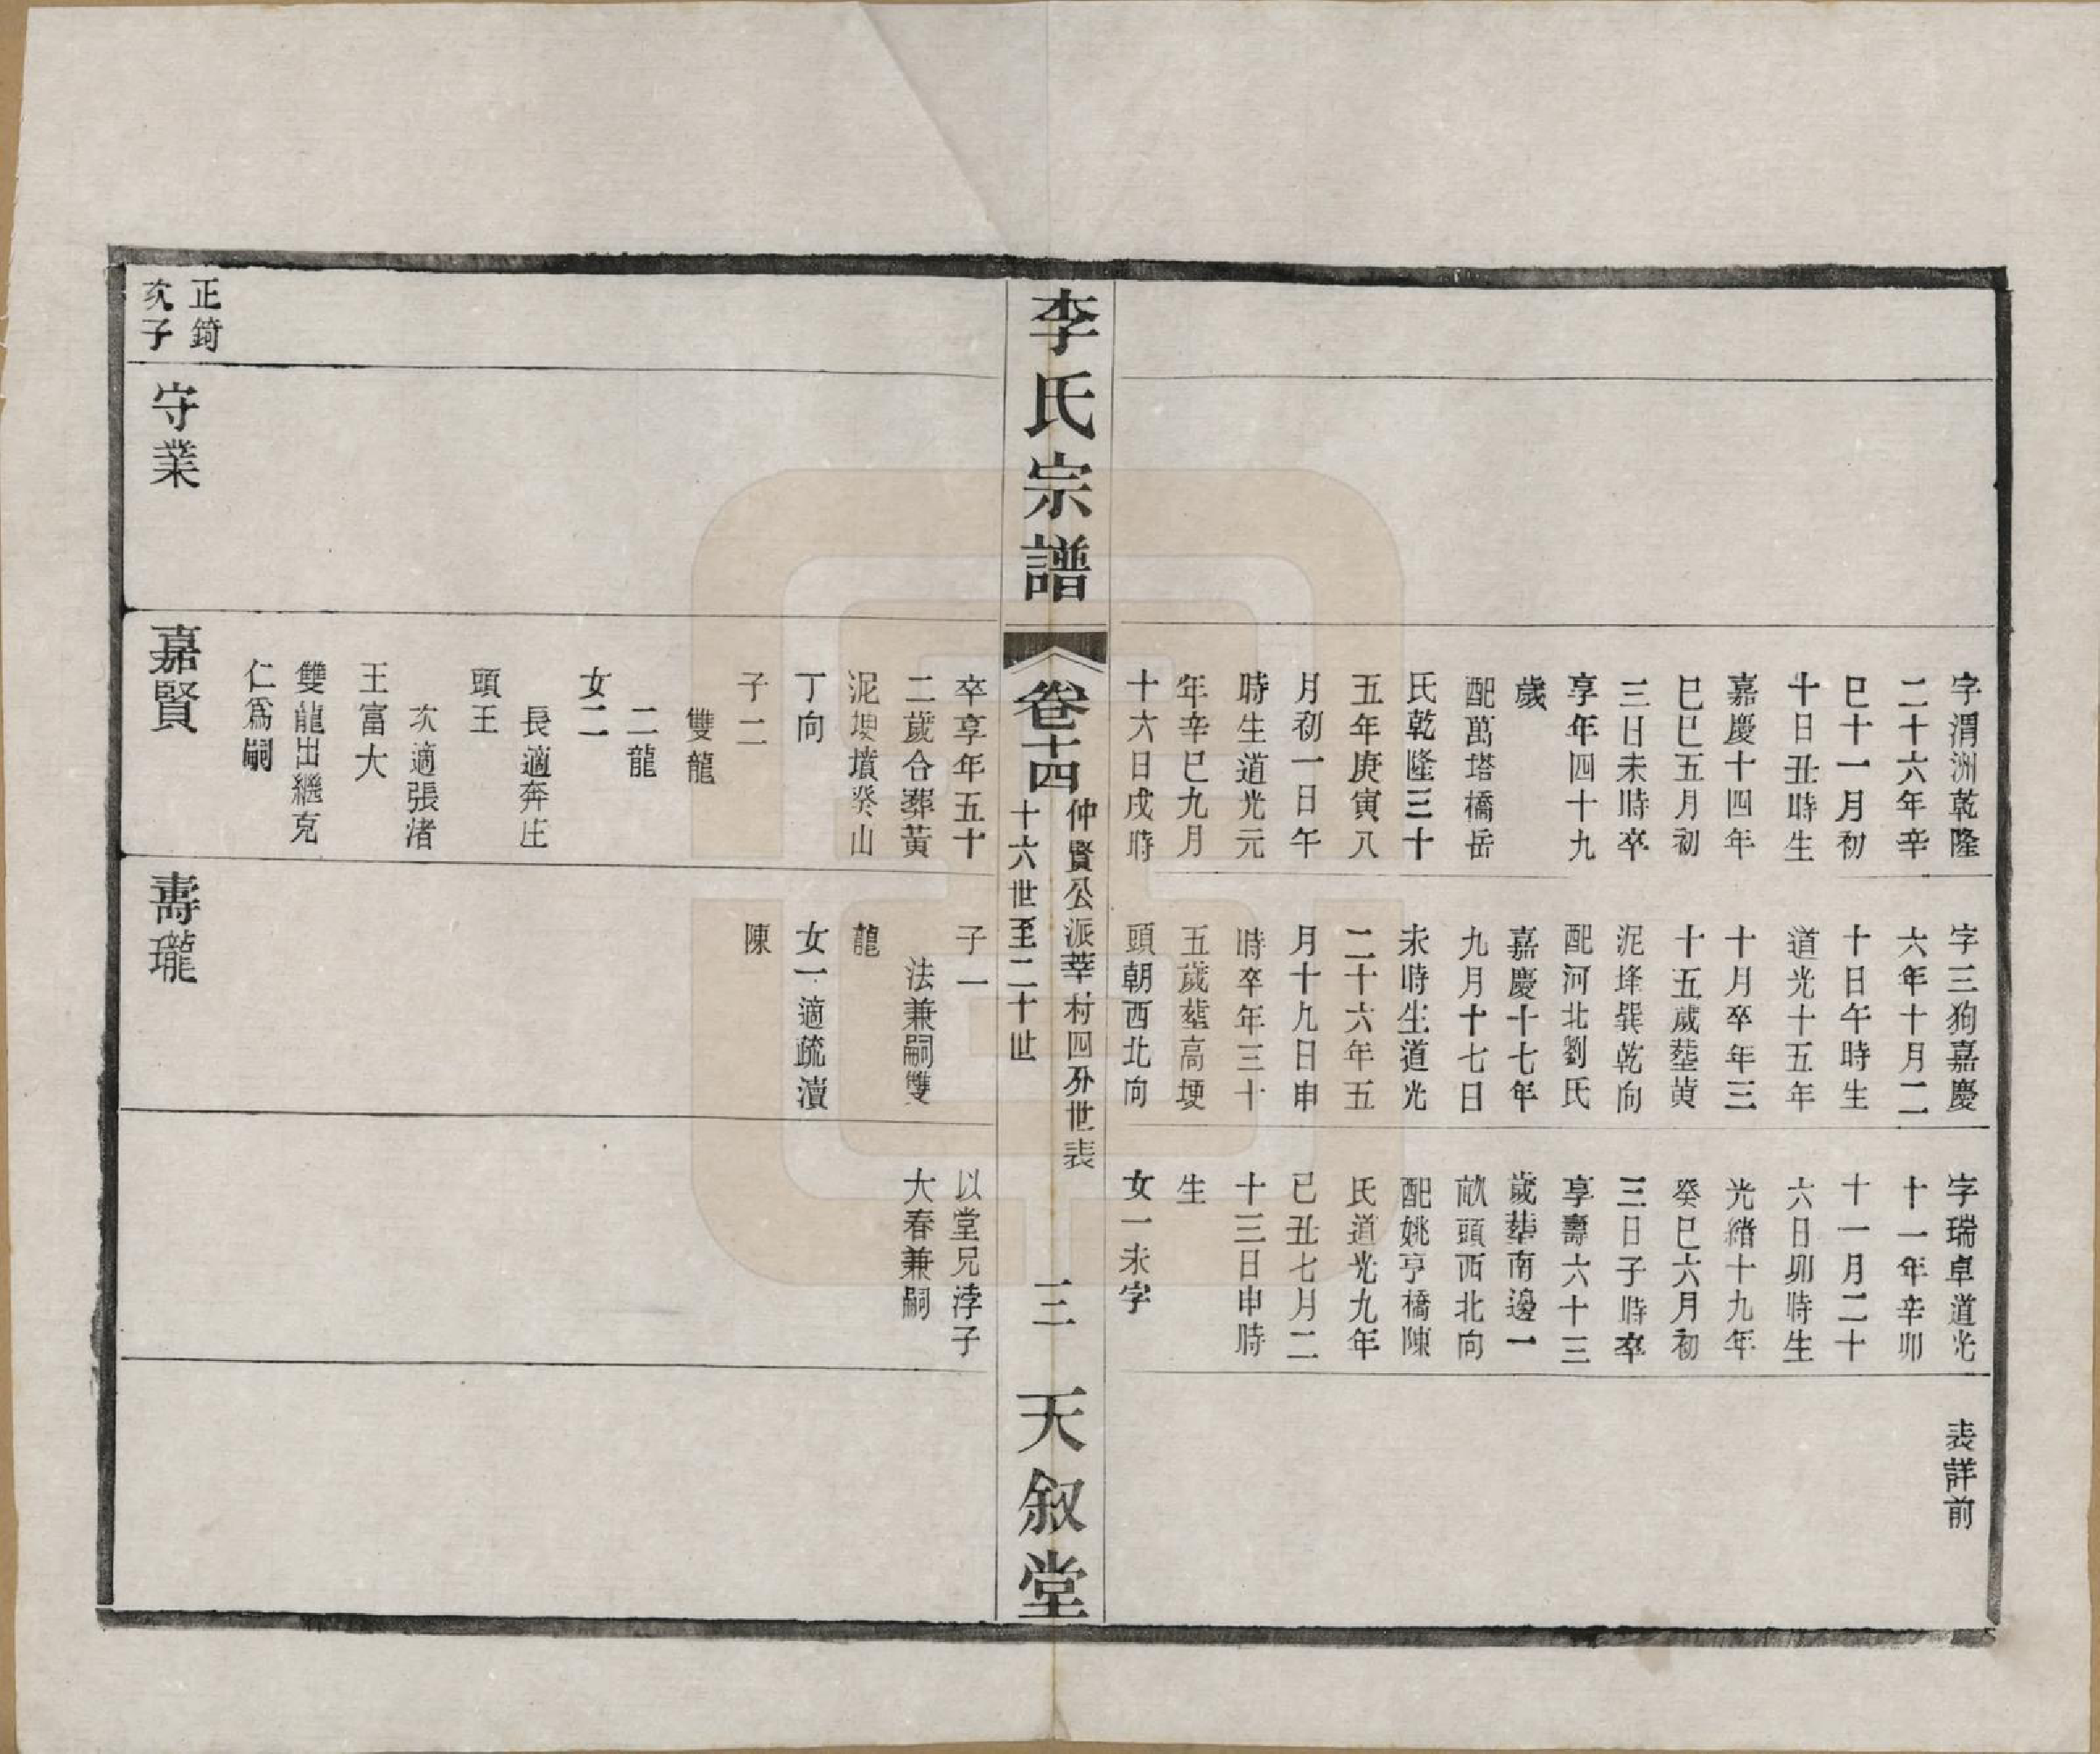 字渭洲乾隆
二十六年辛
巳十一月初
十日丑時生
嘉慶十四年
巳巳五月初
三日未時卒
享年四十九
歲
配萬塔橋岳
氏乾隆三十
五年庚寅八
月初一日午
時生道光元
年辛巳九月
十六日戌時
字三狗嘉慶
六年十月二
十日午時生
道光十五年
十月卒年三
十五歲塟黄
泥埄巽乾向
配河北劉氏
嘉慶十七年
九月十七日
未時生道光
二十六年五
月十九日申
時卒年三十
五歲塟高埂
頭朝西北向
字瑞卓道光
十一年辛卯
十一月二十
六日卯時生
光緒十九年
癸巳六月初
三日子時卒
享壽六十三
歲塟南邊一
畝頭西北向
配姚亨橋陳
氏道光九年
己丑七月二
十三日申時
生
女一未字
表詳前
李氏宗譜
卷十四
仲賢公派莘村四分世表
十六世至二十世
三
天叙堂
卒享年五十
二歲合塟黄
泥埂墳癸山
丁向
子二
雙龍
二龍
女二
長適奔庄
頭王
次適張渚
王富大
雙龍出繼克
仁爲嗣
子一
法兼嗣雙
龍
女一適疏瀆
陳
以堂兄浡子
大春兼嗣
正錡
次子
守業
嘉賢
壽瓏